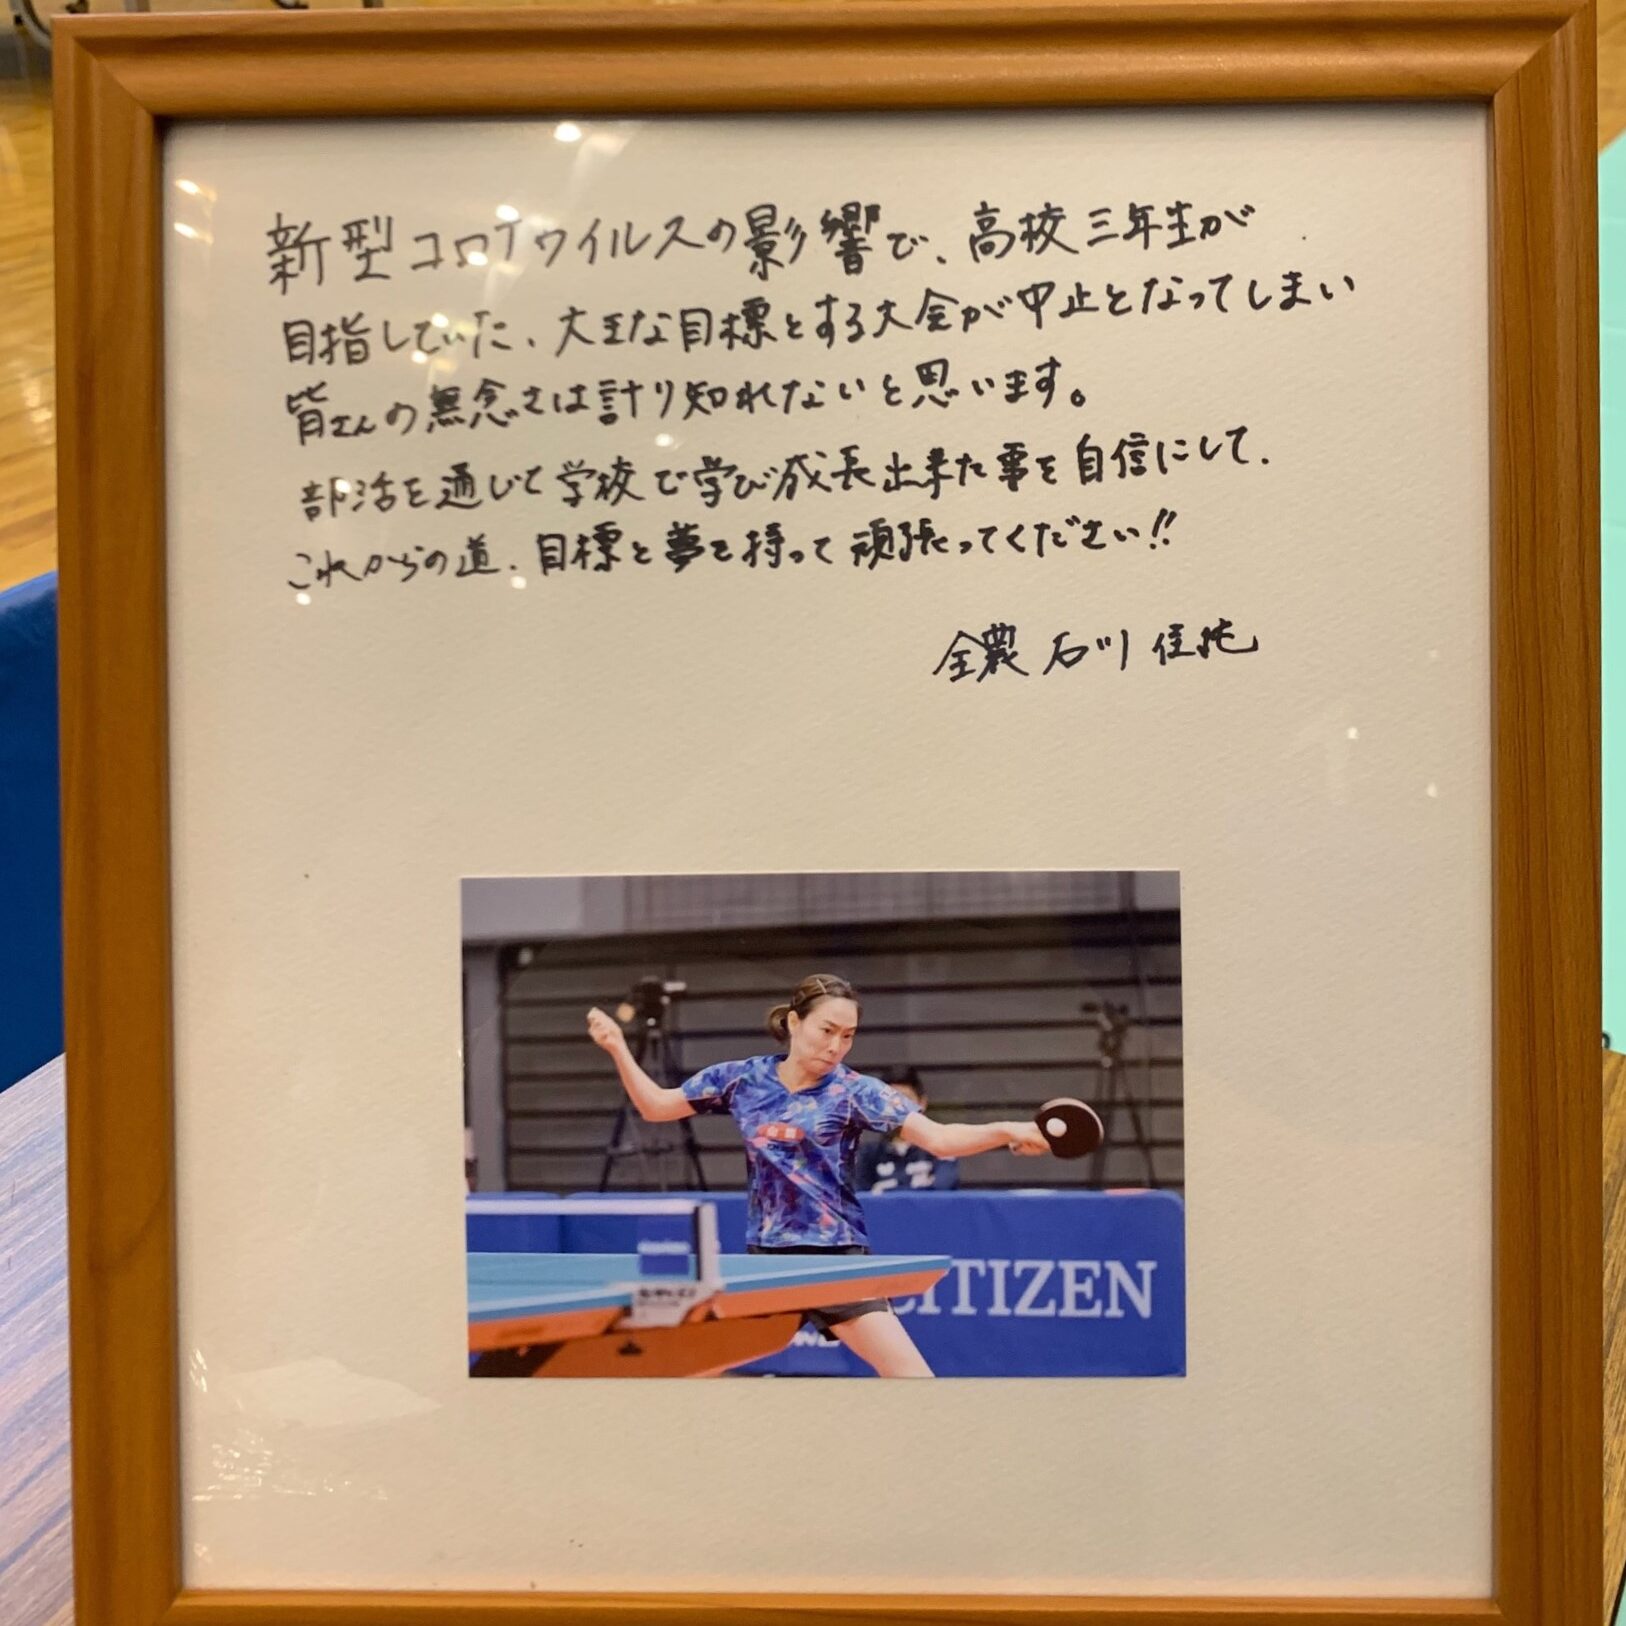 新型コロナウイルスの影響で、高校三年生が
目指していた、大きな目標とする大会が中止となってしまい
皆さんの無念さは計り知れないと思います。
部活を通じて学校で学び成長出来た事を自信にして、
これからの道、目標と夢を持って頑張ってください!!
全農 石川 佳純
CITIZEN